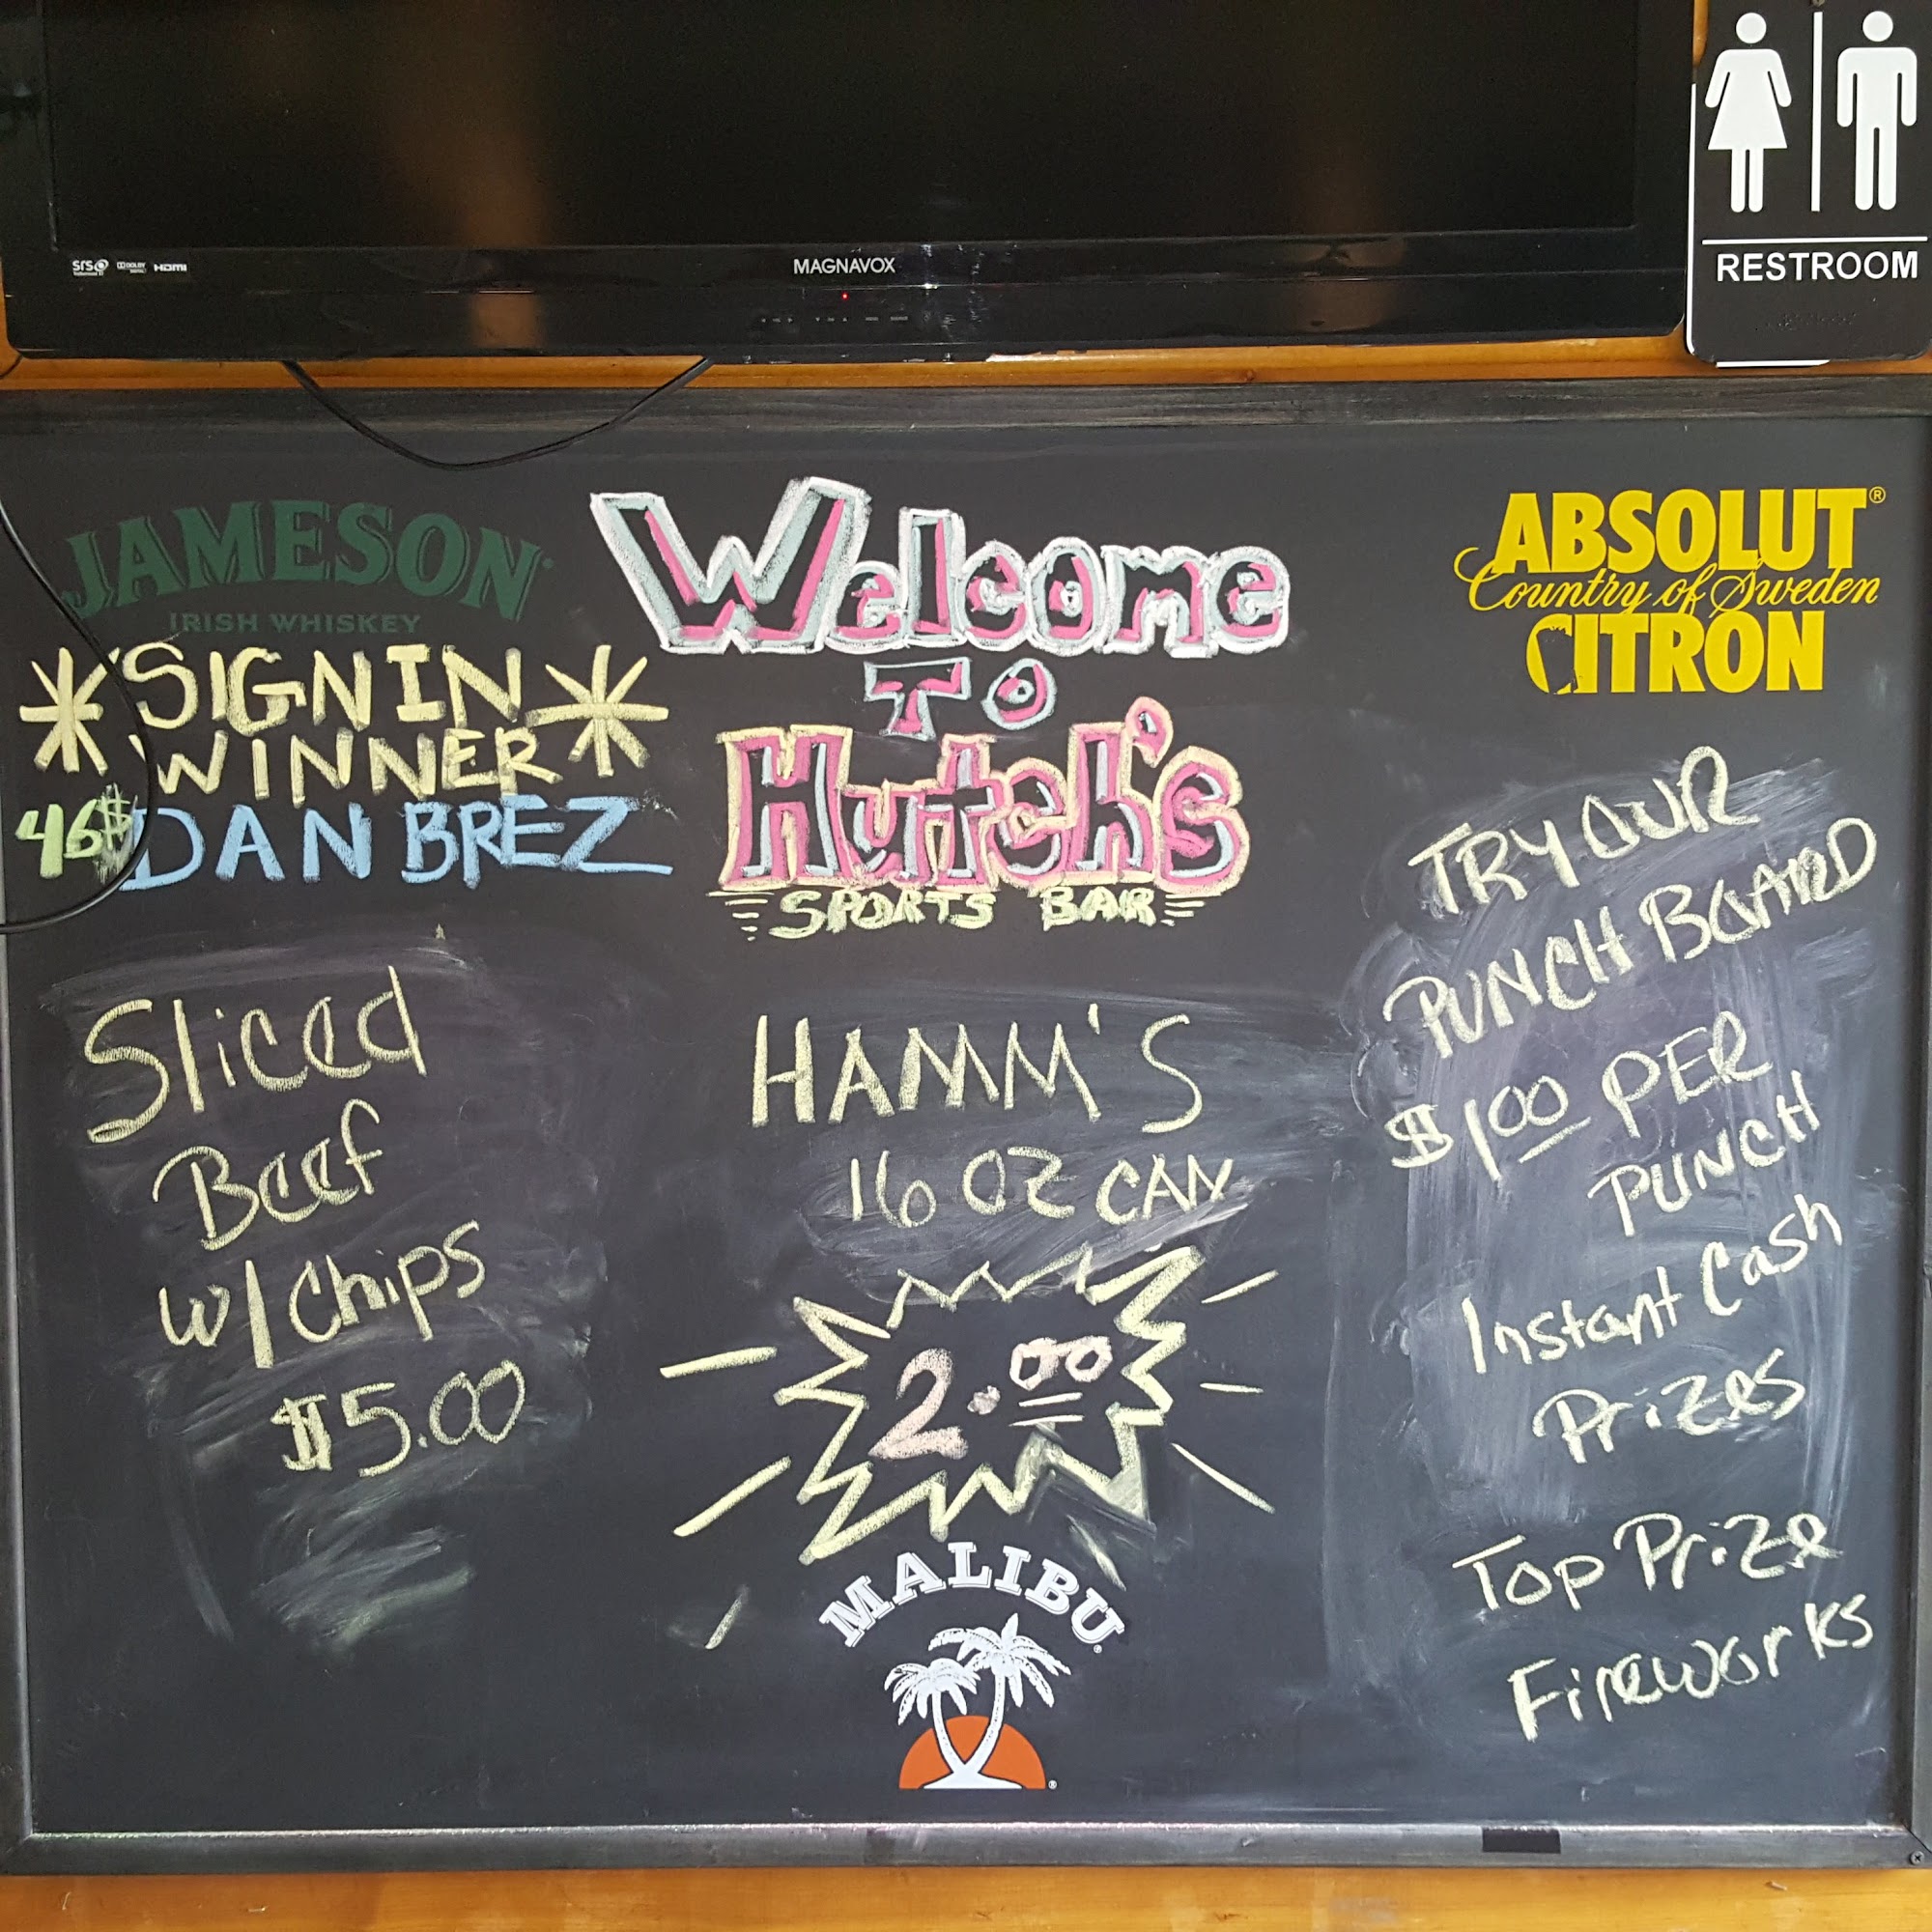 RESTROOM
SRS DOLBY DIGITAL HDMI
MAGNAVOX
JAMESON
IRISH WHISKEY
*SIGN IN*
WINNER
46$ DAN BREZ
Welcome
TO
Hutch's
SPORTS BAR
ABSOLUT®
Country of Sweden
CITRON
Sliced
Beef
w/ Chips
$5.00
HAMM'S
16 OZ CAN
2.00
MALIBU
TRY OUR
PUNCH BOARD
$1.00 PER
PUNCH
Instant Cash
Prizes
Top Prize
Fireworks